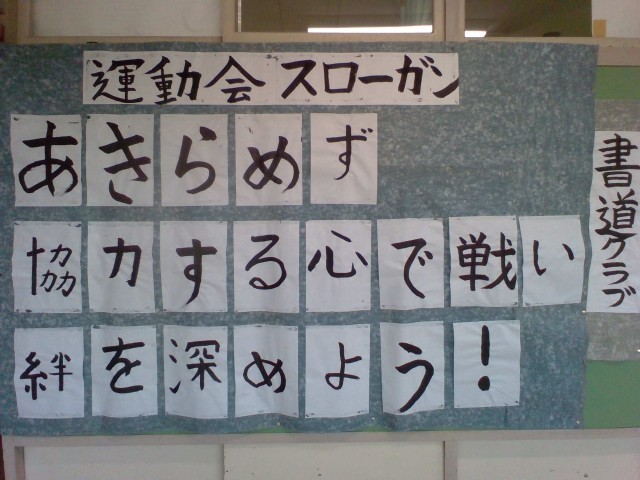 運動会スローガン
あきらめず
協力する心で戦い
絆を深めよう!
書道クラブ